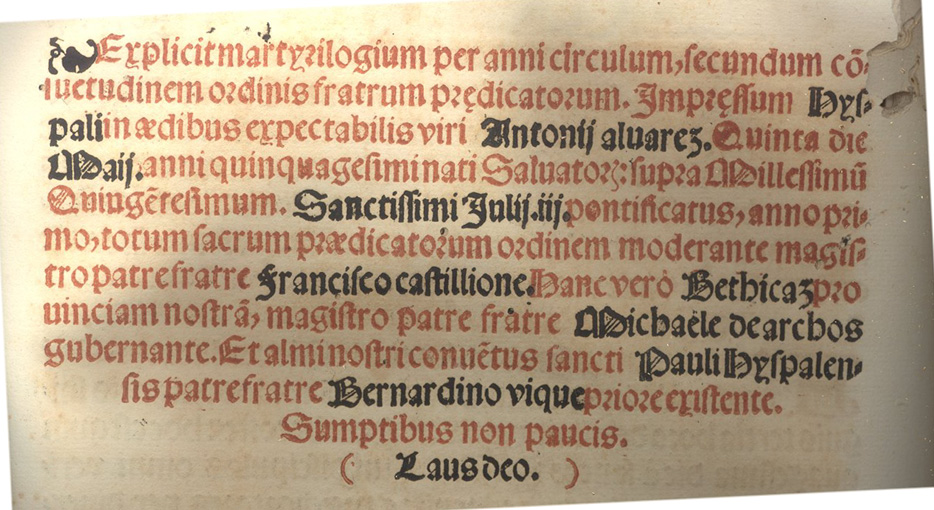 Explicit martyrilogium per anni circulum, secundum cõ-
suetudinem ordinis fratrum prędicatorum. Impręssum Hys-
pali in ædibus expectabilis viri Antonij aluarez. Quinta die
Maij. anni quinquagesimi nati Saluatorꝭ: supra Millessimũ
Quiugẽtesimum. Sanctissimi Julij.iij. pontificatus, anno pri-
mo, totum sacrum prædicatorum ordinem moderante magis-
tro patre fratre Françisco castillione. Hanc verò Bethicaʒ pro
uinciam nostrã, magistro patre fratre Michaële de archos
gubernante. Et almi nostri conuẽtus sancti Pauli Hyspalen-
sis patre fratre Bernardino vique priore existente.
Sumptibus non paucis.
( Laus deo. )